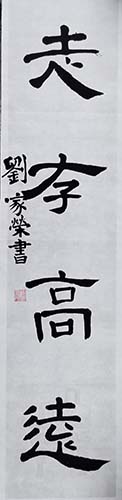 志存高遠
劉家榮書